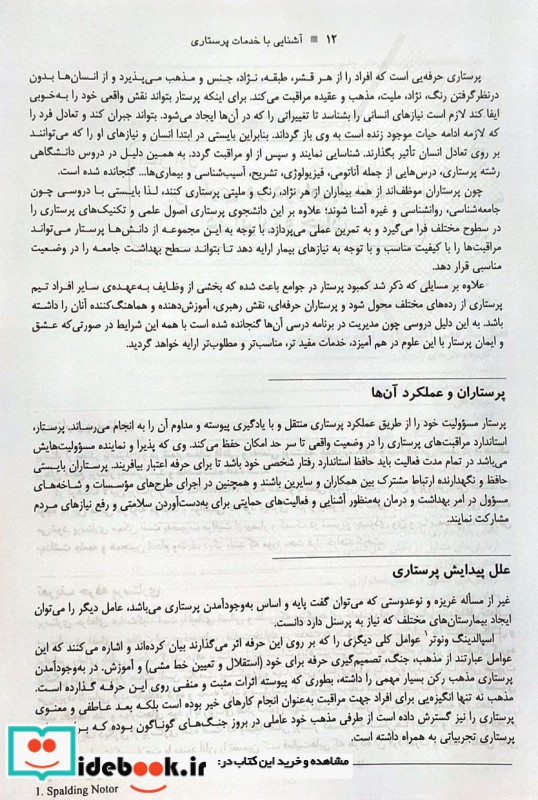 ۱۲ ■ آشنایی با خدمات پرستاری
پرستاری حرفه‌یی است که افراد را از هر قشر، طبقه، نژاد، جنس و مذهب می‌پذیرد و از انسان‌ها بدون
درنظرگرفتن رنگ، نژاد، ملیت، مذهب و عقیده مراقبت می‌کند. برای اینکه پرستار بتواند نقش واقعی خود را به‌خوبی
ایفا کند لازم است نیازهای انسانی را بشناسد تا تغییراتی را که در آن‌ها ایجاد می‌شود، بتواند جبران کند و تعادل فرد را
که لازمه ادامه حیات موجود زنده است به وی باز گرداند. بنابراین بایستی در ابتدا انسان و نیازهای او را که می‌توانند
بر روی تعادل انسان تأثیر بگذارند، شناسایی نمایند و سپس از او مراقبت گردد. به همین دلیل در دروس دانشگاهی
رشته پرستاری، درس‌هایی از جمله آناتومی، فیزیولوژی، تشریح، آسیب‌شناسی و بیماری‌ها... گنجانده شده است.
چون پرستاران موظف‌اند از همه بیماران از هر نژاد، رنگ و ملیتی پرستاری کنند، لذا بایستی با دروسی چون
جامعه‌شناسی، روانشناسی و غیره آشنا شوند؛ علاوه بر این دانشجوی پرستاری اصول علمی و تکنیک‌های پرستاری را
در سطوح مختلف فرا می‌گیرد و به تمرین عملی می‌پردازد. با توجه به این مجموعه از دانش‌ها پرستار می‌تواند
مراقبت‌ها را با کیفیت مناسب و با توجه به نیازهای بیمار ارایه دهد تا بتواند سطح بهداشت جامعه را در وضعیت
مناسبی قرار دهد.
علاوه بر مسایلی که ذکر شد کمبود پرستار در جوامع باعث شده که بخشی از وظایف به‌عهده‌ی سایر افراد تیم
پرستاری از رده‌های مختلف محول شود و پرستاران حرفه‌ای، نقش رهبری، آموزش‌دهنده و هماهنگ‌کننده آنان را داشته
باشد. به این دلیل دروسی چون مدیریت در برنامه درسی آن‌ها گنجانده شده است با همه این شرایط در صورتی‌که عشق
و ایمان پرستار با این علوم در هم آمیزد، خدمات مفید تر، مناسب‌تر و مطلوب‌تر ارایه خواهد گردید.
پرستاران و عملکرد آن‌ها
پرستار مسؤولیت خود را از طریق عملکرد پرستاری منتقل و با یادگیری پیوسته و مداوم آن را به انجام می‌رساند. پرستار،
استاندارد مراقبت‌های پرستاری را در وضعیت واقعی تا سر حد امکان حفظ می‌کند. وی که پذیرا و نماینده مسؤولیت‌هایش
می‌باشد در تمام مدت فعالیت باید حافظ استاندارد رفتار شخصی خود باشد تا برای حرفه اعتبار بیافریند. پرستاران بایستی
حافظ و نگهدارنده ارتباط مشترک بین همکاران و سایرین باشند و همچنین در اجرای طرح‌های مؤسسات و شاخه‌های
مسؤول در امر بهداشت و درمان به‌منظور آشنایی و فعالیت‌های حمایتی برای به‌دست‌آوردن سلامتی و رفع نیازهای مردم
مشارکت نمایند.
علل پیدایش پرستاری
غیر از مسأله غریزه و نوعدوستی که می‌توان گفت پایه و اساس به‌وجودآمدن پرستاری می‌باشد، عامل دیگر را می‌توان
ایجاد بیمارستان‌های مختلف که نیاز به پرسنل دارد دانست.
اسپالدینگ ونوتر۱ عوامل کلی دیگری را که بر روی این حرفه اثر می‌گذارند بیان کرده‌اند و اشاره می‌کنند که این
عوامل عبارتند از مذهب، جنگ، تصمیم‌گیری حرفه برای خود (استقلال و تعیین خط مشی) و آموزش. در به‌وجودآمدن
پرستاری مذهب رکن بسیار مهمی را داشته، بطوری که پیوسته اثرات مثبت و منفی روی این حرفه گذارده است.
مذهب نه تنها انگیزه‌یی برای افراد جهت مراقبت به‌عنوان انجام کارهای خیر بوده است بلکه بعد عاطفی و معنوی
پرستاری را نیز گسترش داده است از طرفی مذهب خود عاملی در بروز جنگ‌های گوناگون بوده که
پرستاری تجربیاتی به همراه داشته است.
مشاهده و خرید این کتاب در:
idebook.ir
1. Spalding Notor